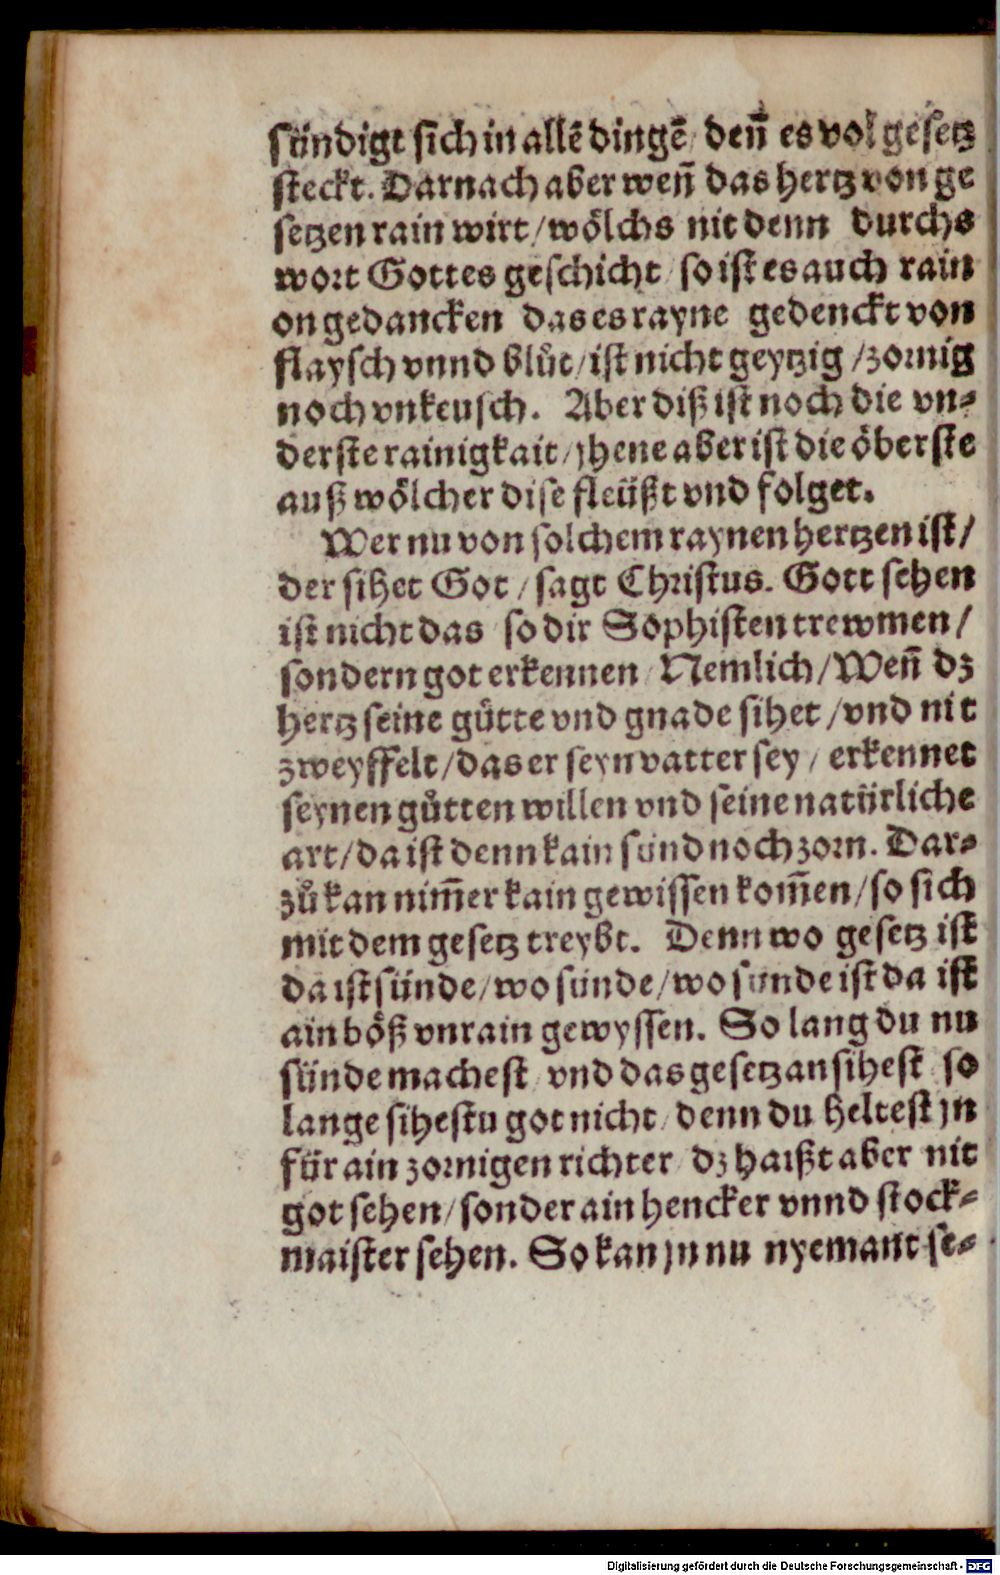 sündigt sich in allē dingē / deñ es vol gesetz
steckt. Darnach aber weñ das hertz von ge
setzen rain wirt / wölchs nit denn durchs
wort Gottes geschicht / so ist es auch rain
on gedancken das es rayne gedenckt von
flaysch vnnd blůt / ist nicht geytzig / zornig
noch vnkeusch. Aber diß ist noch die vn-
derste rainigkait / jhene aber ist die öberste
auß wölcher dise fleüßt vnd folget.
Wer nu von solchem raynen hertzen ist /
der sihet Got / sagt Christus. Gott sehen
ist nicht das so dir Sophisten trewmen /
sondern got erkennen / Nemlich / Weñ dz
hertz seine gůtte vnd gnade sihet / vnd nit
zweyffelt / das er seyn vatter sey / erkennet
seynen gůtten willen vnd seine natürliche
art / da ist denn kain sünd noch zorn. Dar-
zů kan nim̄er kain gewissen kom̄en / so sich
mit dem gesetz treybt. Denn wo gesetz ist
da ist sünde / wo sünde / wo sünde ist da ist
ain böß vnrain gewyssen. So lang du nu
sünde machest vnd das gesetz ansihest so
lange sihestu got nicht / denn du heltest jn
für ain zornigen richter / dz haißt aber nit
got sehen / sonder ain hencker vnnd stock-
maister sehen. So kan jn nu nyemant se-
Digitalisierung gefördert durch die Deutsche Forschungsgemeinschaft - DFG